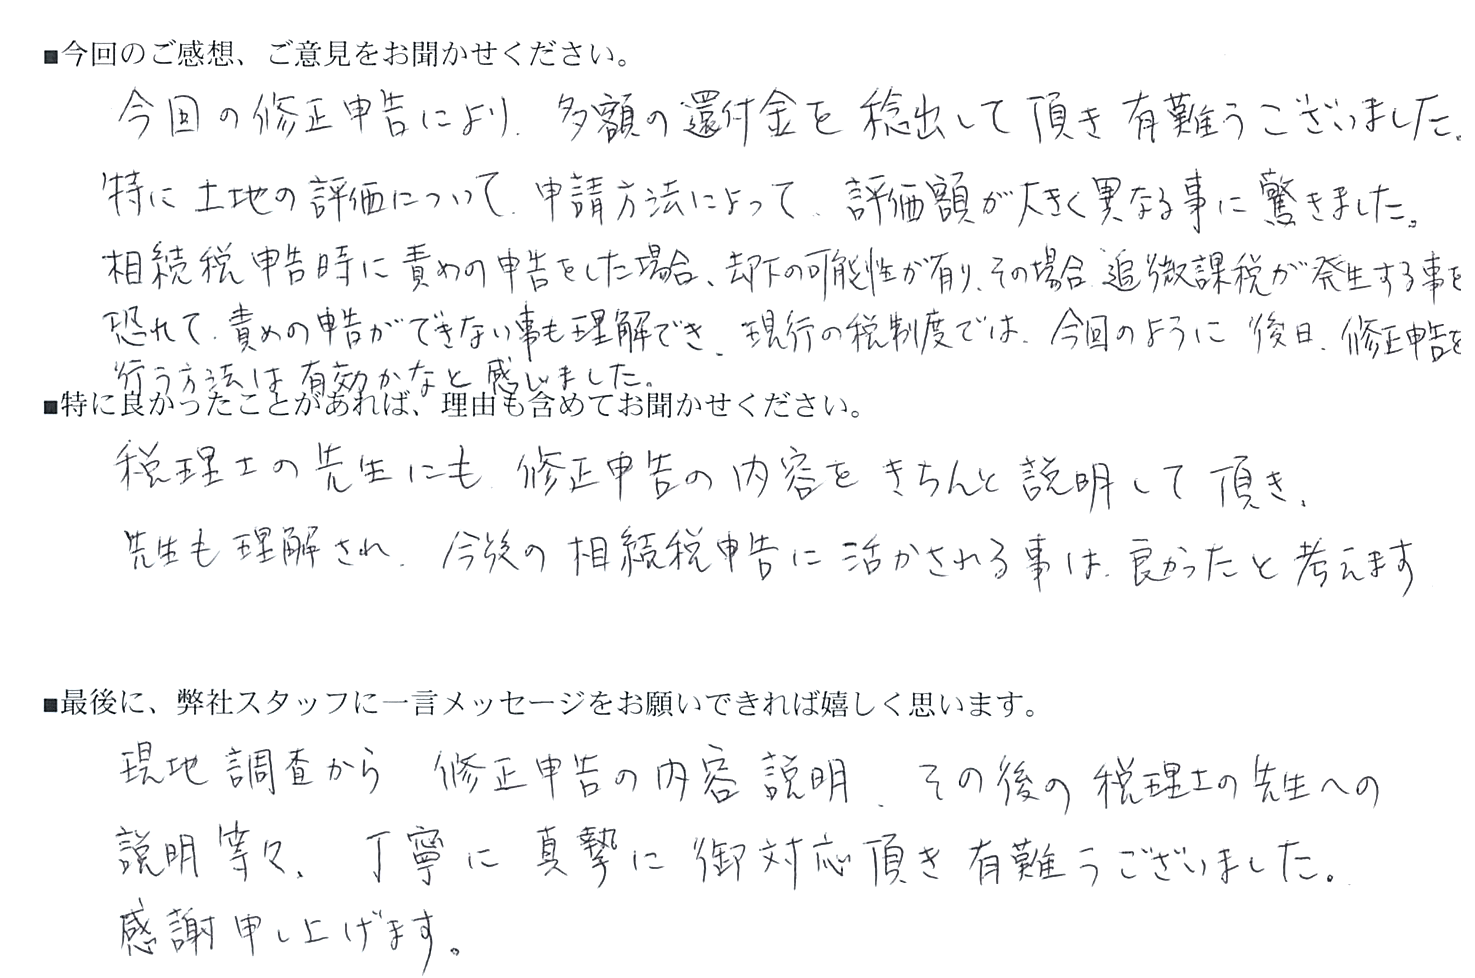 ■今回のご感想、ご意見をお聞かせください。
今回の修正申告により、多額の還付金を捻出して頂き有難うございました。
特に土地の評価について、申請方法によって、評価額が大きく異なる事に驚きました。
相続税申告時に責めの申告をした場合、却下の可能性が有り、その場合、追徴課税が発生する事を
恐れて、責めの申告ができない事も理解でき、現行の税制度では、今回のように後日、修正申告を
行う方法は有効かなと感じました。
■特に良かったことがあれば、理由も含めてお聞かせください。
税理士の先生にも、修正申告の内容をきちんと説明して頂き、
先生も理解され、今後の相続税申告に活かされる事は、良かったと考えます
■最後に、弊社スタッフに一言メッセージをお願いできれば嬉しく思います。
現地調査から修正申告の内容説明、その後の税理士の先生への
説明等々、丁寧に真摯に御対応頂き有難うございました。
感謝申し上げます。